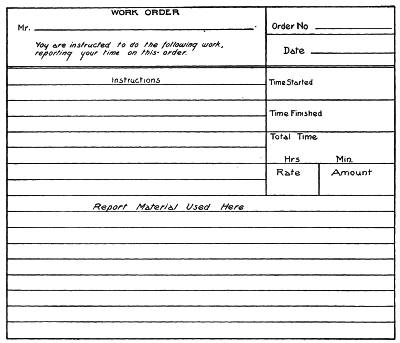 WORK ORDER
Mr.
You are instructed to do the following work,
reporting your time on this order.
Order No
Date
Instructions
Time Started
Time Finished
Total Time
Hrs Min.
Rate Amount
Report Material Used Here